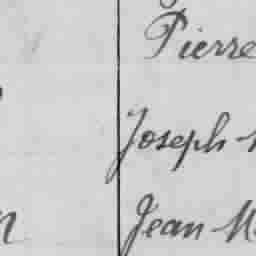 Pierre
Joseph-
Jean M